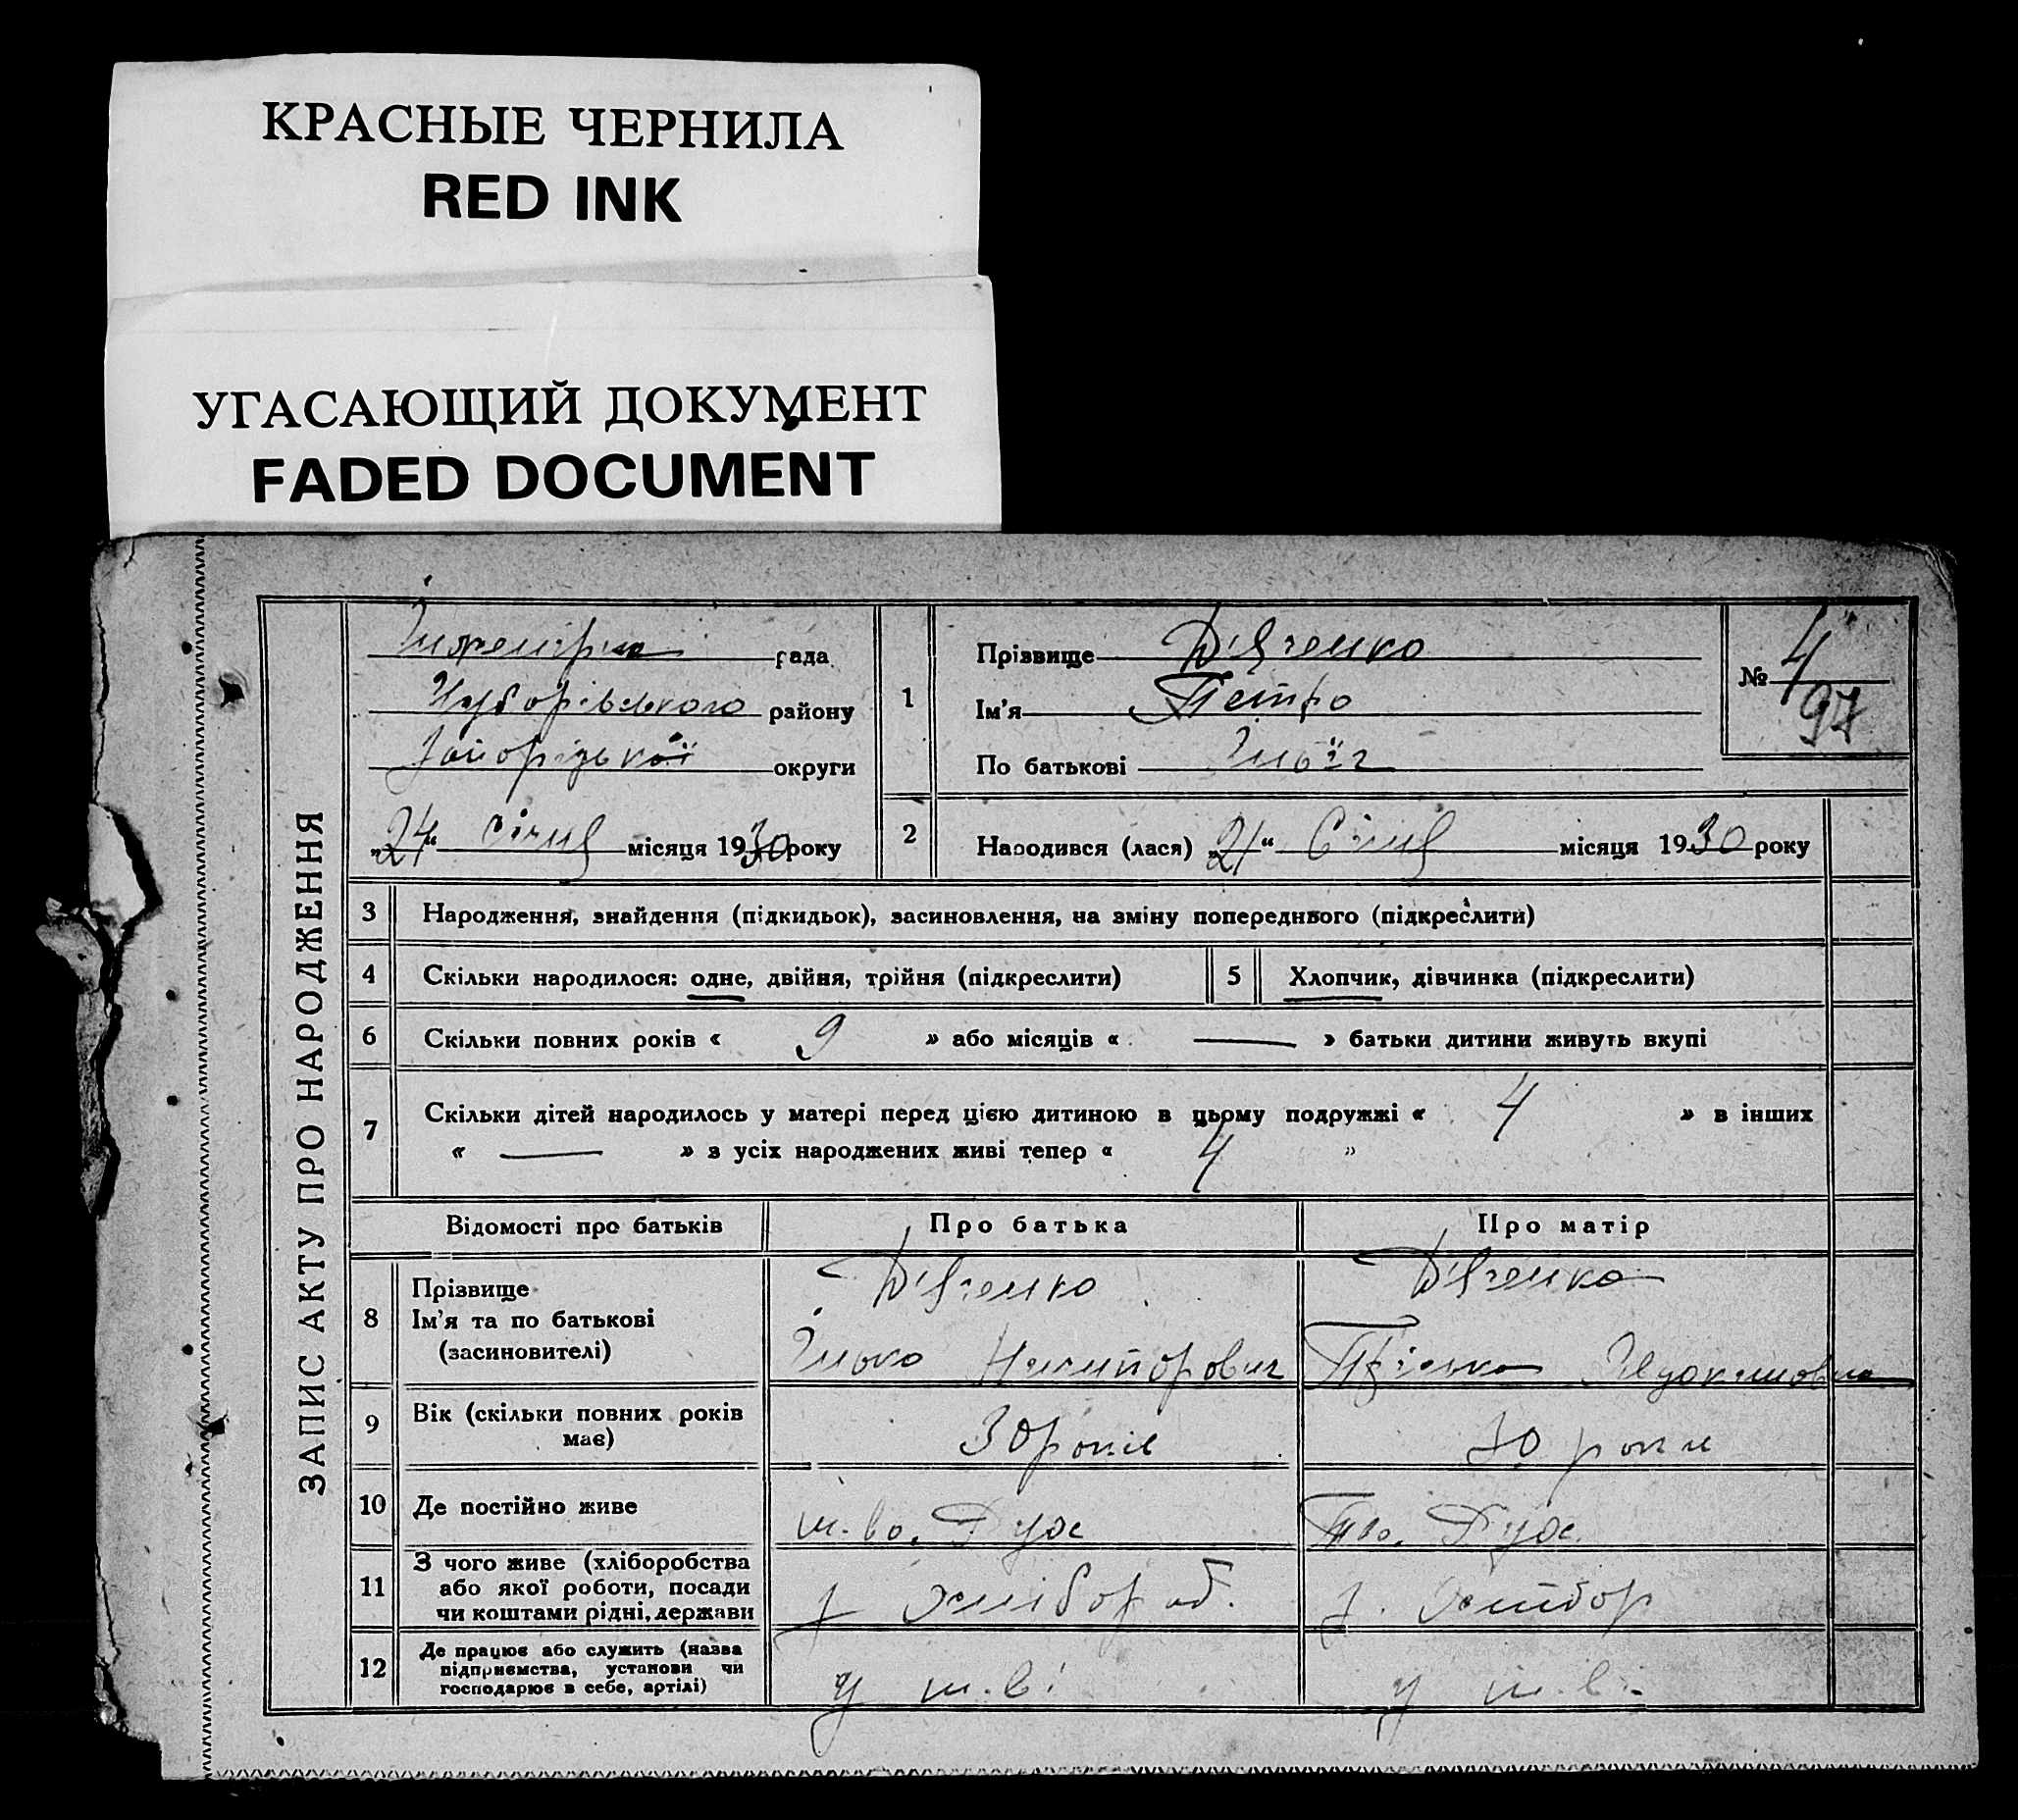 КРАСНЫЕ ЧЕРНИЛА
RED INK
УГАСАЮЩИЙ ДОКУМЕНТ
FADED DOCUMENT
ЗАПИС АКТУ ПРО НАРОДЖЕННЯ
рада
району
Запорізької округи
„24“ січня місяця 1930 року
1
Прізвище Д'яченко
Ім'я Петро
По батькові
№ 4
97
2 Народився (лася) „21“ Січня місяця 1930 року
3 Народження, знайдення (підкидьок), засиновлення, на зміну попереднього (підкреслити)
4 Скільки народилося: одне, двійня, трійня (підкреслити) 5 Хлопчик, дівчинка (підкреслити)
6 Скільки повних років « 9 » або місяців « — » батьки дитини живуть вкупі
7 Скільки дітей народилось у матері перед цією дитиною в цьому подружжі « 4 » в інших
« — » з усіх народжених живі тепер « 4 »
Відомості про батьків Про батька Про матір
8 Прізвище Д'яченко Д'яченко
Ім'я та по батькові Ілько Ничипорович
(засновителі)
9 Вік (скільки повних років має) 30 років 30 роки
10 Де постійно живе
11 З чого живе (хліборобства
або якої роботи, посади
чи коштами рідні, держави
з хлібороб. з. хлібор
12 Де працює або служить (назва
підприємства, установи чи
господарює в себе, артілі)
у т.ві у т.ві